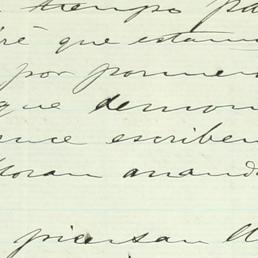 tiempo pa
ré que estam
por pormen
que demon
nce escriben
lloran ando
piensan U